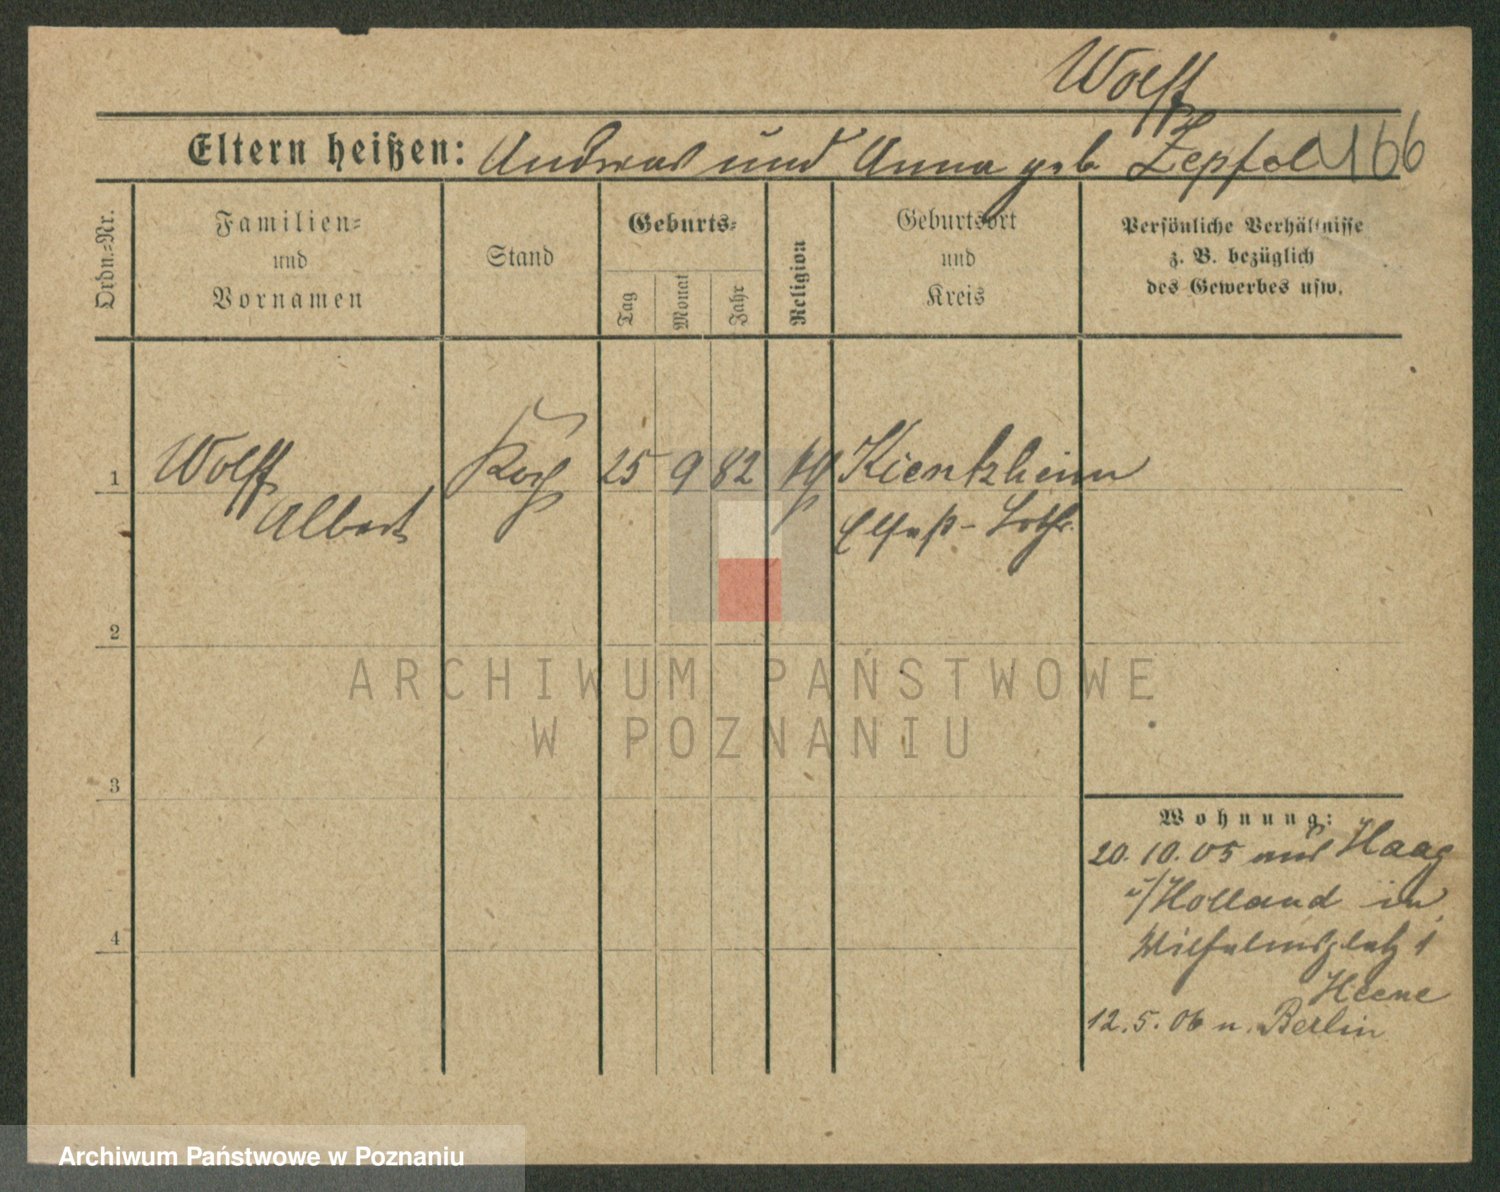 Wolff
Eltern heißen: Andreas und Anna geb. Zepfel 166
Ordn.=Nr.
Familien=
und
Vornamen
Stand
Geburts=
Tag
Monat
Jahr
Religion
Geburtsort
und
Kreis
Persönliche Verhältnisse
z. B. bezüglich
des Gewerbes usw.
1 Wolff Koch 25 9 82 kg Kientzheim
Albert Elsaß-Lothr.
2
3
4
Wohnung:
20.10.05 aus Haag
i/Holland in
Wilhelmsplatz 1
Heene
12.5.06 n. Berlin
ARCHIWUM PAŃSTWOWE
W POZNANIU
Archiwum Państwowe w Poznaniu